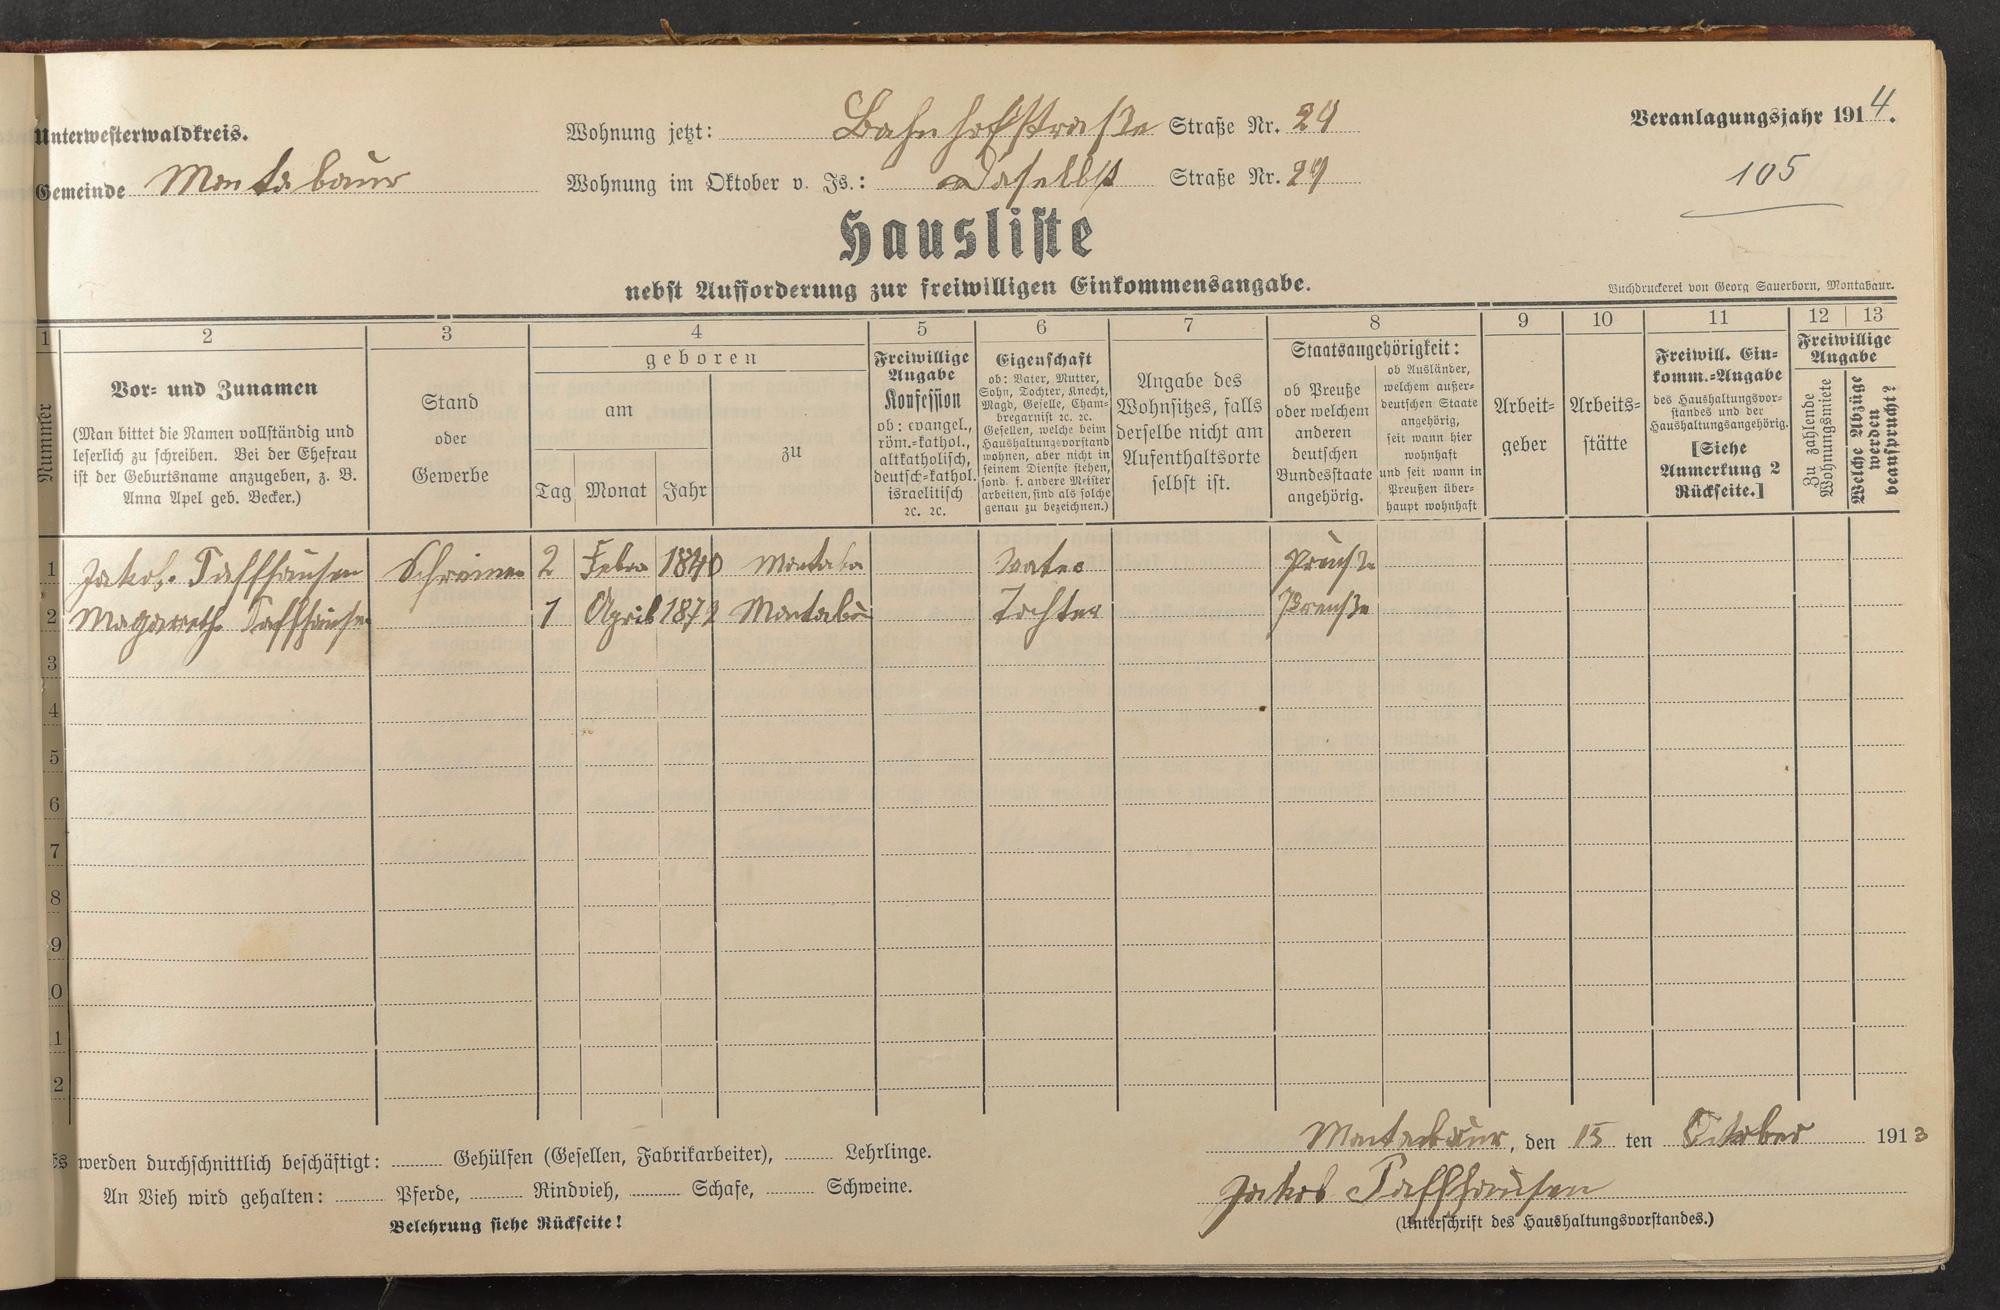 Unterwesterwaldkreis.
Gemeinde Montabaur
Wohnung jetzt: Bahnhofstraße Straße Nr. 29
Wohnung im Oktober v. Js.: Daselbst Straße Nr. 29
Veranlagungsjahr 1914.
105
Hausliste
nebst Aufforderung zur freiwilligen Einkommensangabe.
Buchdruckerei von Georg Sauerborn, Montabaur.
1 2 3 4 5 6 7 8 9 10 11 12 13
Nummer
Vor- und Zunamen
(Man bittet die Namen vollständig und
leserlich zu schreiben. Bei der Ehefrau
ist der Geburtsname anzugeben, z. B.
Anna Apel geb. Becker.)
Stand
oder
Gewerbe
geboren
am
Tag Monat Jahr
zu
Freiwillige
Angabe
Konfession
ob: evangel.,
röm.-kathol.,
altkatholisch,
deutsch-kathol.
israelitisch
ꝛc. ꝛc.
Eigenschaft
ob: Vater, Mutter,
Sohn, Tochter, Knecht,
Magd, Geselle, Cham-
bregarnist ꝛc. ꝛc.
Gesellen, welche beim
Haushaltungsvorstand
wohnen, aber nicht in
seinem Dienste stehen,
sond. f. andere Meister
arbeiten, sind als solche
genau zu bezeichnen.)
Angabe des
Wohnsitzes, falls
derselbe nicht am
Aufenthaltsorte
selbst ist.
Staatsangehörigkeit:
ob Preuße
oder welchem
anderen
deutschen
Bundesstaate
angehörig.
ob Ausländer,
welchem außer-
deutschen Staate
angehörig,
seit wann hier
wohnhaft
und seit wann in
Preußen über-
haupt wohnhaft
Arbeit-
geber
Arbeits-
stätte
Freiwill. Ein-
komm.-Angabe
des Haushaltungsvor-
standes und der
Haushaltungsangehörig.
[Siehe
Anmerkung 2
Rückseite.]
Freiwillige
Angabe
Zu zahlende
Wohnungsmiete
Welche Abzüge
werden
beansprucht?
1 Jakob Taffhausen Schreiner 2 Febr 1840 Montaba Vater Preuße
2 Magareth Taffhause 1 April 1879 Montabau Tochter Preuße
3
4
5
6
7
8
9
10
11
12
Es werden durchschnittlich beschäftigt: Gehülfen (Gesellen, Fabrikarbeiter), Lehrlinge.
An Vieh wird gehalten: Pferde, Rindvieh, Schafe, Schweine.
Belehrung siehe Rückseite!
Montabaur, den 15 ten October 1913
Jakob Taffhausen
(Unterschrift des Haushaltungsvorstandes.)